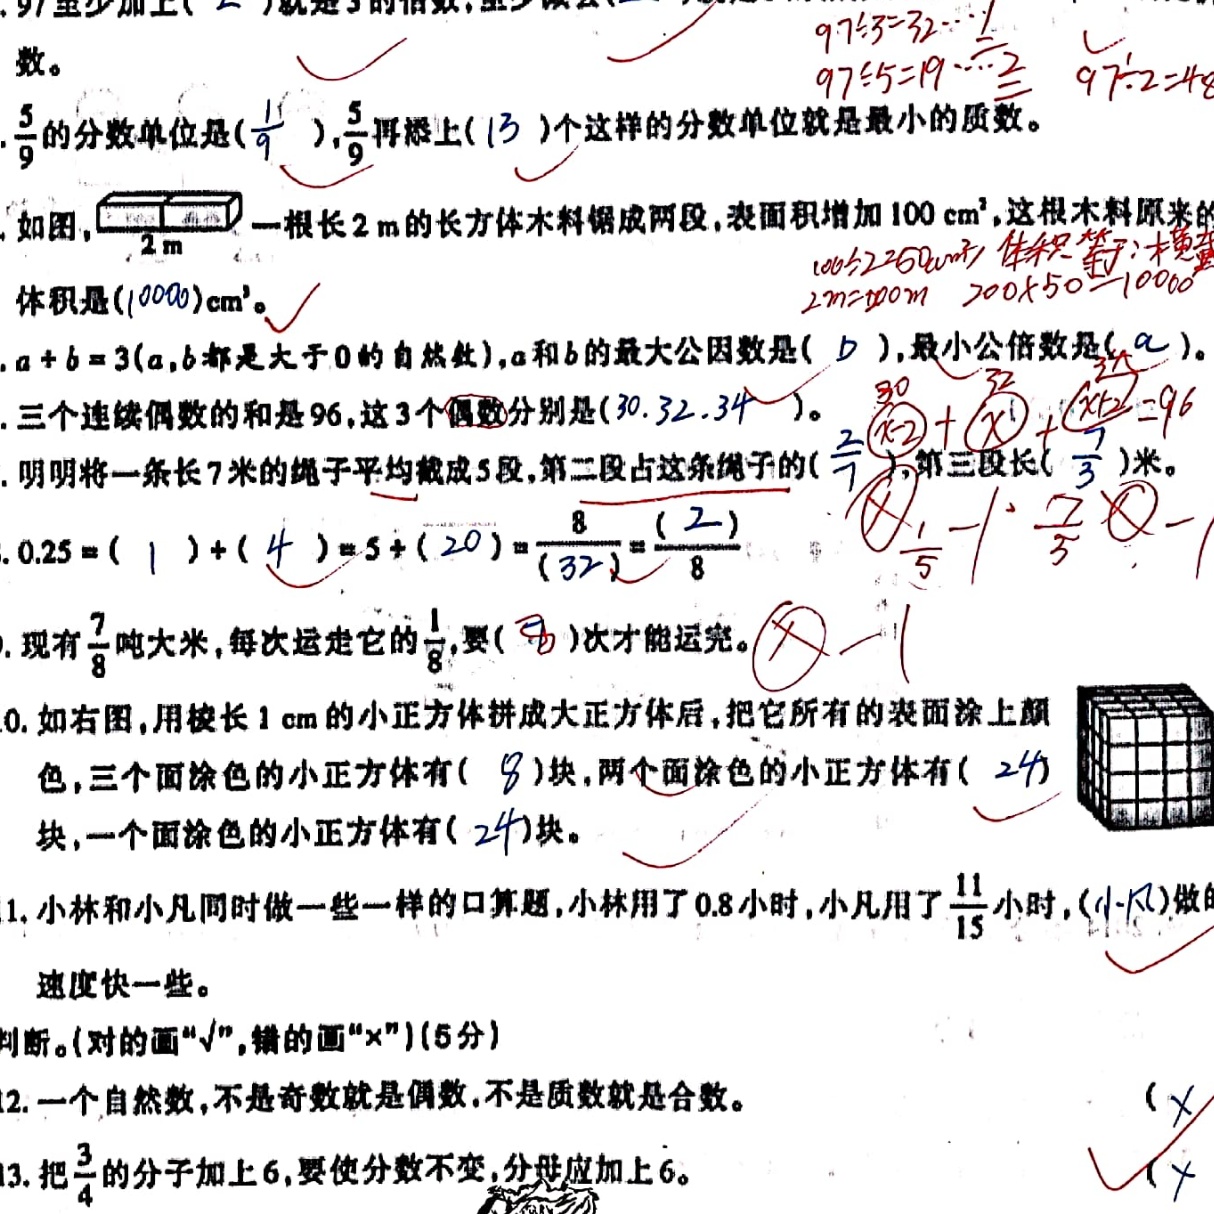 97至少加上(2)就是3的倍数,至少
97÷3=32……1
数。
97÷5=19……2 97÷2=48
5/9的分数单位是(1/9),5/9再添上(13)个这样的分数单位就是最小的质数。
如图, 一根长2 m的长方体木料锯成两段,表面积增加100 cm²,这根木料原来的
2 m
体积是(10000)cm³。
2m=200m 200×50=10000
a÷b=3(a,b都是大于0的自然数),a和b的最大公因数是(b),最小公倍数是(a)。
30 32 34
三个连续偶数的和是96,这3个偶数分别是(30.32.34)。 (x-2)+(x)+(x+2)=96
明明将一条长7米的绳子平均截成5段,第二段占这条绳子的(2/7),第三段长(7/3)米。
1/5 -1 7/5 -1
0.25=(1)÷(4)=5÷(20)=8/(32)=(2)/8
9.现有7/8吨大米,每次运走它的1/8,要( )次才能运完。 -1
10.如右图,用棱长1 cm的小正方体拼成大正方体后,把它所有的表面涂上颜
色,三个面涂色的小正方体有(8)块,两个面涂色的小正方体有(24)
块,一个面涂色的小正方体有(24)块。
11.小林和小凡同时做一些一样的口算题,小林用了0.8小时,小凡用了11/15小时,(小凡)做的
速度快一些。
判断。(对的画“√”,错的画“×”)(5分)
12.一个自然数,不是奇数就是偶数,不是质数就是合数。 (×
13.把3/4的分子加上6,要使分数不变,分母应加上6。 (×